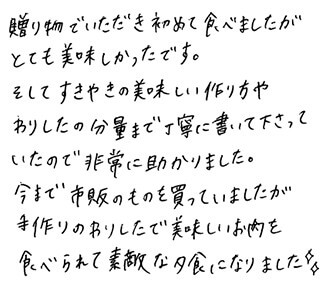 贈り物でいただき初めて食べましたが
とても美味しかったです。
そしてすきやきの美味しい作り方や
わりしたの分量まで丁寧に書いて下さって
いたので非常に助かりました。
今まで市販のものを買っていましたが
手作りのわりしたで美味しいお肉を
食べられて素敵な夕食になりました✨